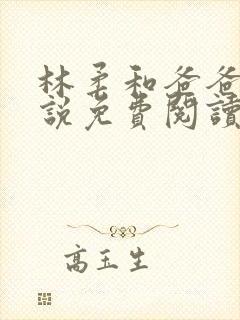 林柔和爸爸
說免費閱讀
高玉生